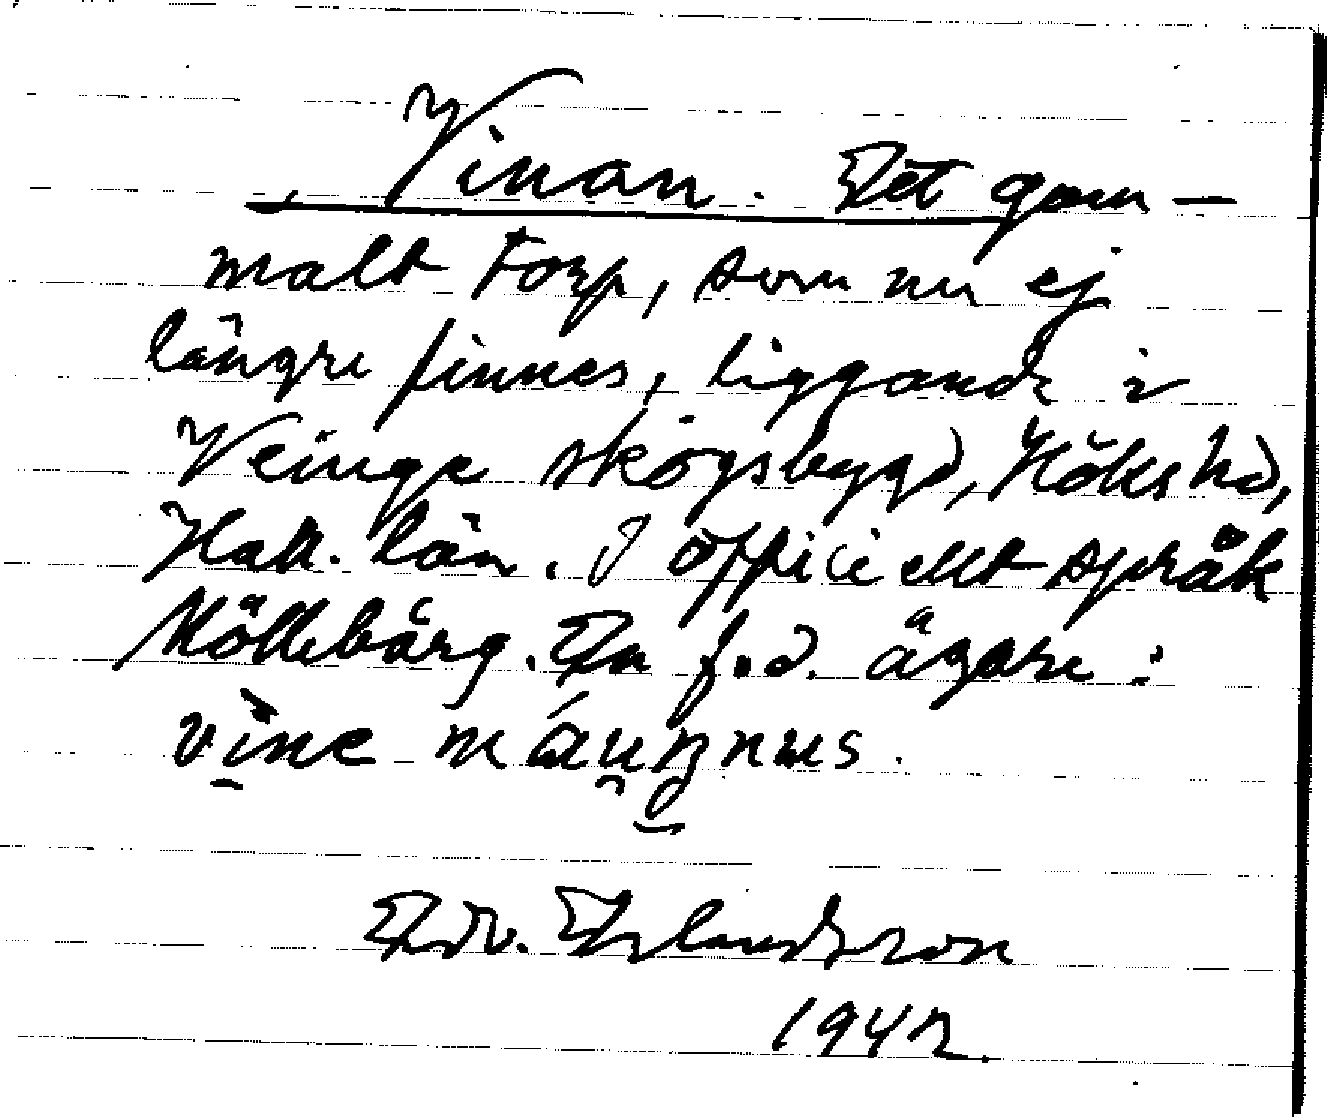 Vinan. Ett gam-
malt torp, som nu ej
längre finnes, liggande i
Veinge skogsbygd, Höks hd,
Hall. län. I officiellt språk
Möllebärg. En f.d. ägare:
vine máu̯ŋnus.
Edv. Erlandsson
1942.